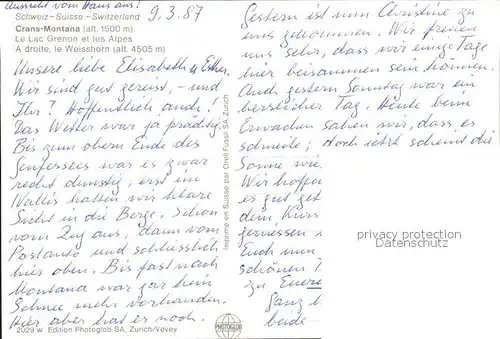 Aussicht vom Haus aus!
9.3.87
Schweiz – Suisse – Switzerland
Crans-Montana (alt. 1500 m)
Le Lac Grenon et les Alpes
A droite, le Weisshorn (alt. 4505 m)
Unsere liebe Elisabeth & Esther,
Wir sind gut gereist, – und
Ihr? Hoffentlich auch!
Das Wetter war ja prächtig.
Bis zum obern Ende des
Genfersees war es zwar
recht dunstig, erst im
Wallis hatten wir klare
Sicht in die Berge. Schon
vom Zug aus, dann vom
Postauto und schliesslich
hier oben. Bis fast nach
Montana war gar kein
Schnee mehr vorhanden.
Hier aber hat es noch.
2029 w Edition Photoglob SA, Zurich/Vevey
Imprimé en Suisse par Orell Füssli SA, Zurich
PHOTOGLOB
Gestern ist nun Christine zu
uns gekommen. Wir freuen
uns sehr, dass wir einige Tage
hier beisammen sein können.
Auch gestern Sonntag war ein
herrlicher Tag. Heute beim
Erwachen sahen wir, dass es
schneite; doch jetzt scheint die
Sonne wie
Wir hoffe
es gut ge
dem Kurs
geniessen
Euch nun
schönen T
zu Eure
Ganz h
beide
privacy protection
Sammler.com